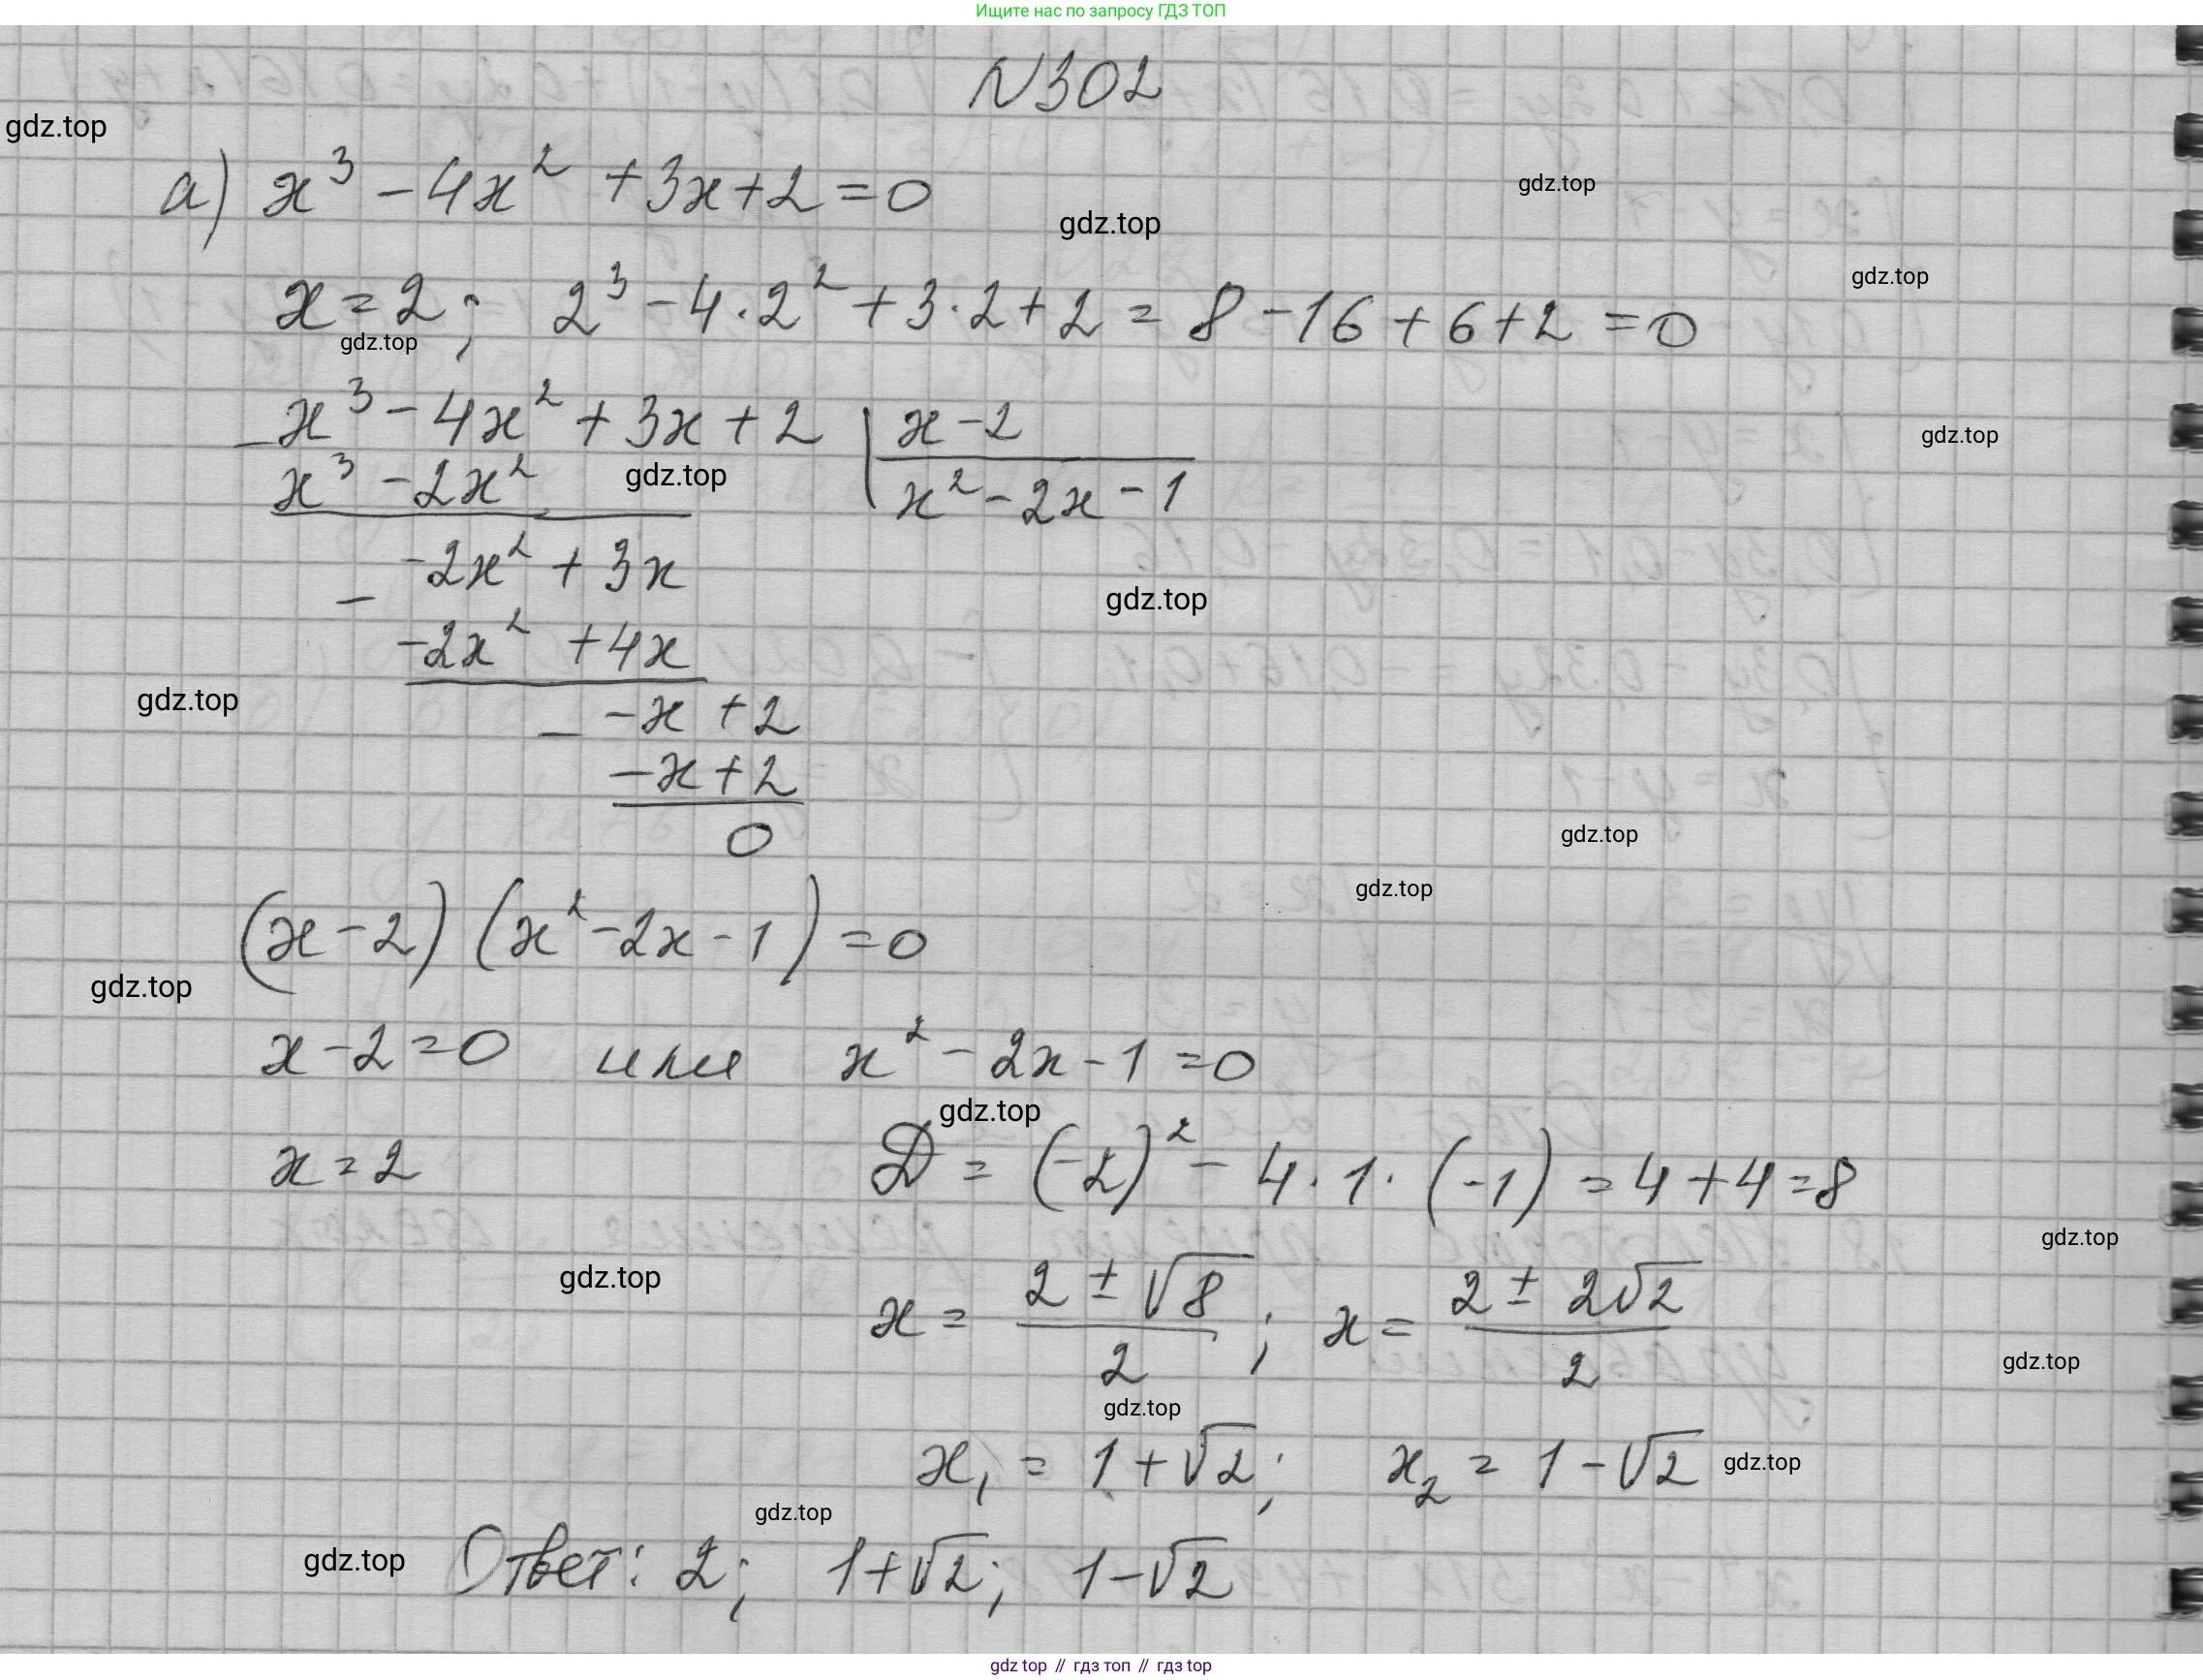 Ищите нас по запросу ГДЗ ТОП
N302
gdz.top
а) x³ - 4x² + 3x + 2 = 0
gdz.top
gdz.top
gdz.top
x = 2; 2³ - 4·2² + 3·2 + 2 = 8 - 16 + 6 + 2 = 0
gdz.top
x³ - 4x² + 3x + 2 | x - 2
gdz.top
x³ - 2x²
gdz.top
x² - 2x - 1
- -2x² + 3x
gdz.top
-2x² + 4x
gdz.top
- -x + 2
-x + 2
0
gdz.top
gdz.top
(x - 2) (x² - 2x - 1) = 0
gdz.top
x - 2 = 0 или x² - 2x - 1 = 0
gdz.top
x = 2 D = (-2)² - 4·1·(-1) = 4 + 4 = 8
gdz.top
gdz.top
x = (2 ± √8)/2 ; x = (2 ± 2√2)/2
gdz.top
gdz.top
x₁ = 1 + √2; x₂ = 1 - √2
gdz.top
gdz.top
gdz.top
Ответ: 2; 1+√2; 1-√2
gdz top // гдз топ // гдз top